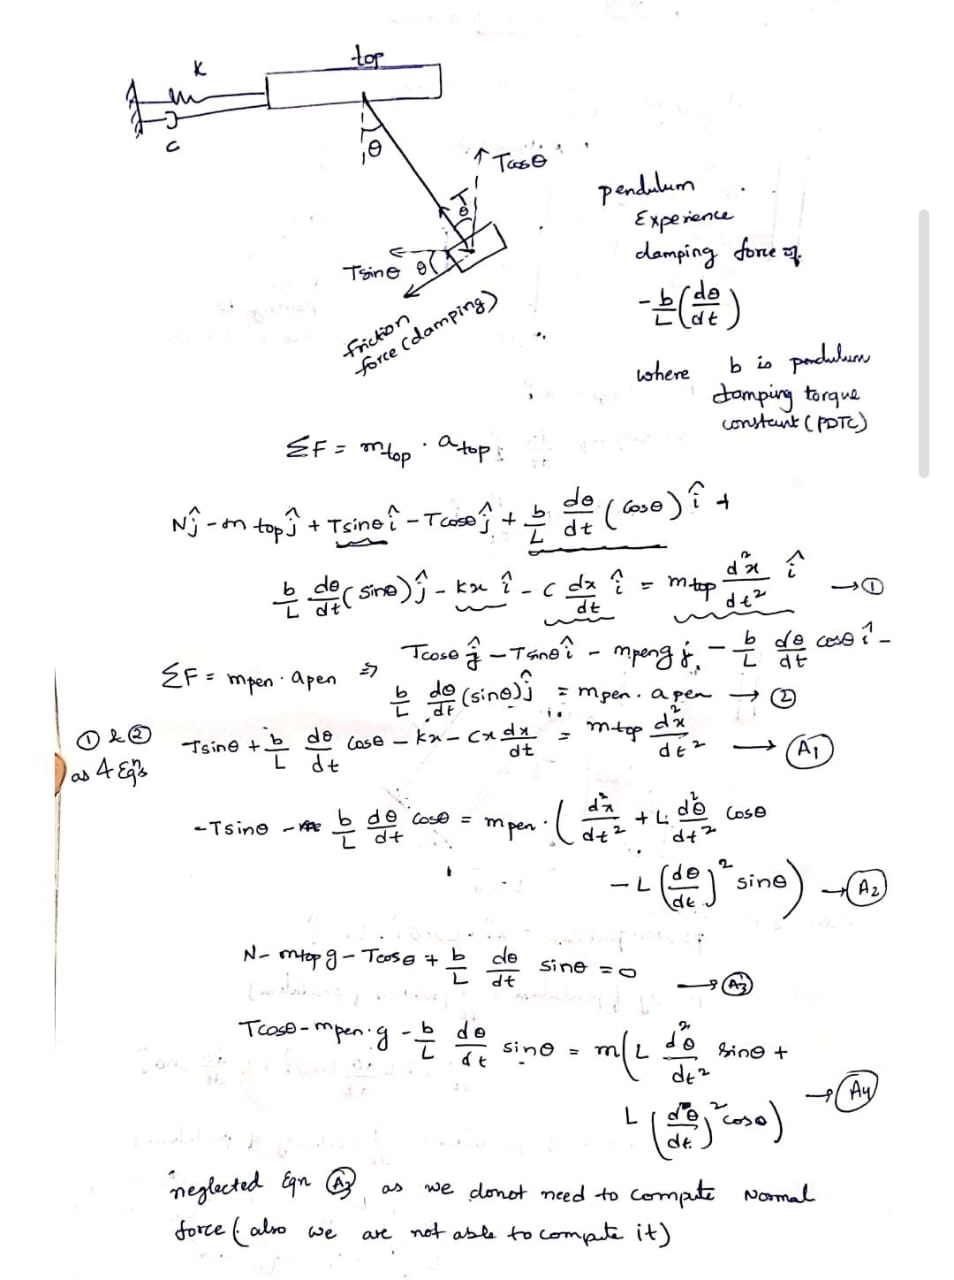 top
K
C
θ
Tcosθ
T
θ
Tsinθ θ
friction
force (damping)
pendulum
Experience
damping force of
-b/L (dθ/dt)
where b is pendulum
damping torque
constant (PDTC)
ΣF = mtop · atop
Nĵ - m topĵ + Tsinθ î - Tcosθ ĵ + b/L dθ/dt (cosθ) î +
b/L dθ/dt (sinθ) ĵ - kx î - c dx/dt î = mtop d²x/dt² î → ①
ΣF = mpen · apen ⇒ Tcosθ ĵ - Tsinθ î - mpeng ĵ - b/L dθ/dt cosθ î -
b/L dθ/dt (sinθ) ĵ = mpen · apen → ②
① & ②
as 4 Eqn's
Tsinθ + b/L dθ/dt cosθ - kx - Cx dx/dt = mtop d²x/dt² → A1
-Tsinθ - b/L dθ/dt cosθ = mpen · ( d²x/dt² + L d²θ/dt² cosθ
- L (dθ/dt)² sinθ ) → A2
N - mtop g - Tcosθ + b/L dθ/dt sinθ = 0 → A3
Tcosθ - mpen·g - b/L dθ/dt sinθ = m( L d²θ/dt² sinθ +
L (dθ/dt)² cosθ ) → A4
neglected Eqn A3 as we donot need to compute Normal
force (also we are not able to compute it)